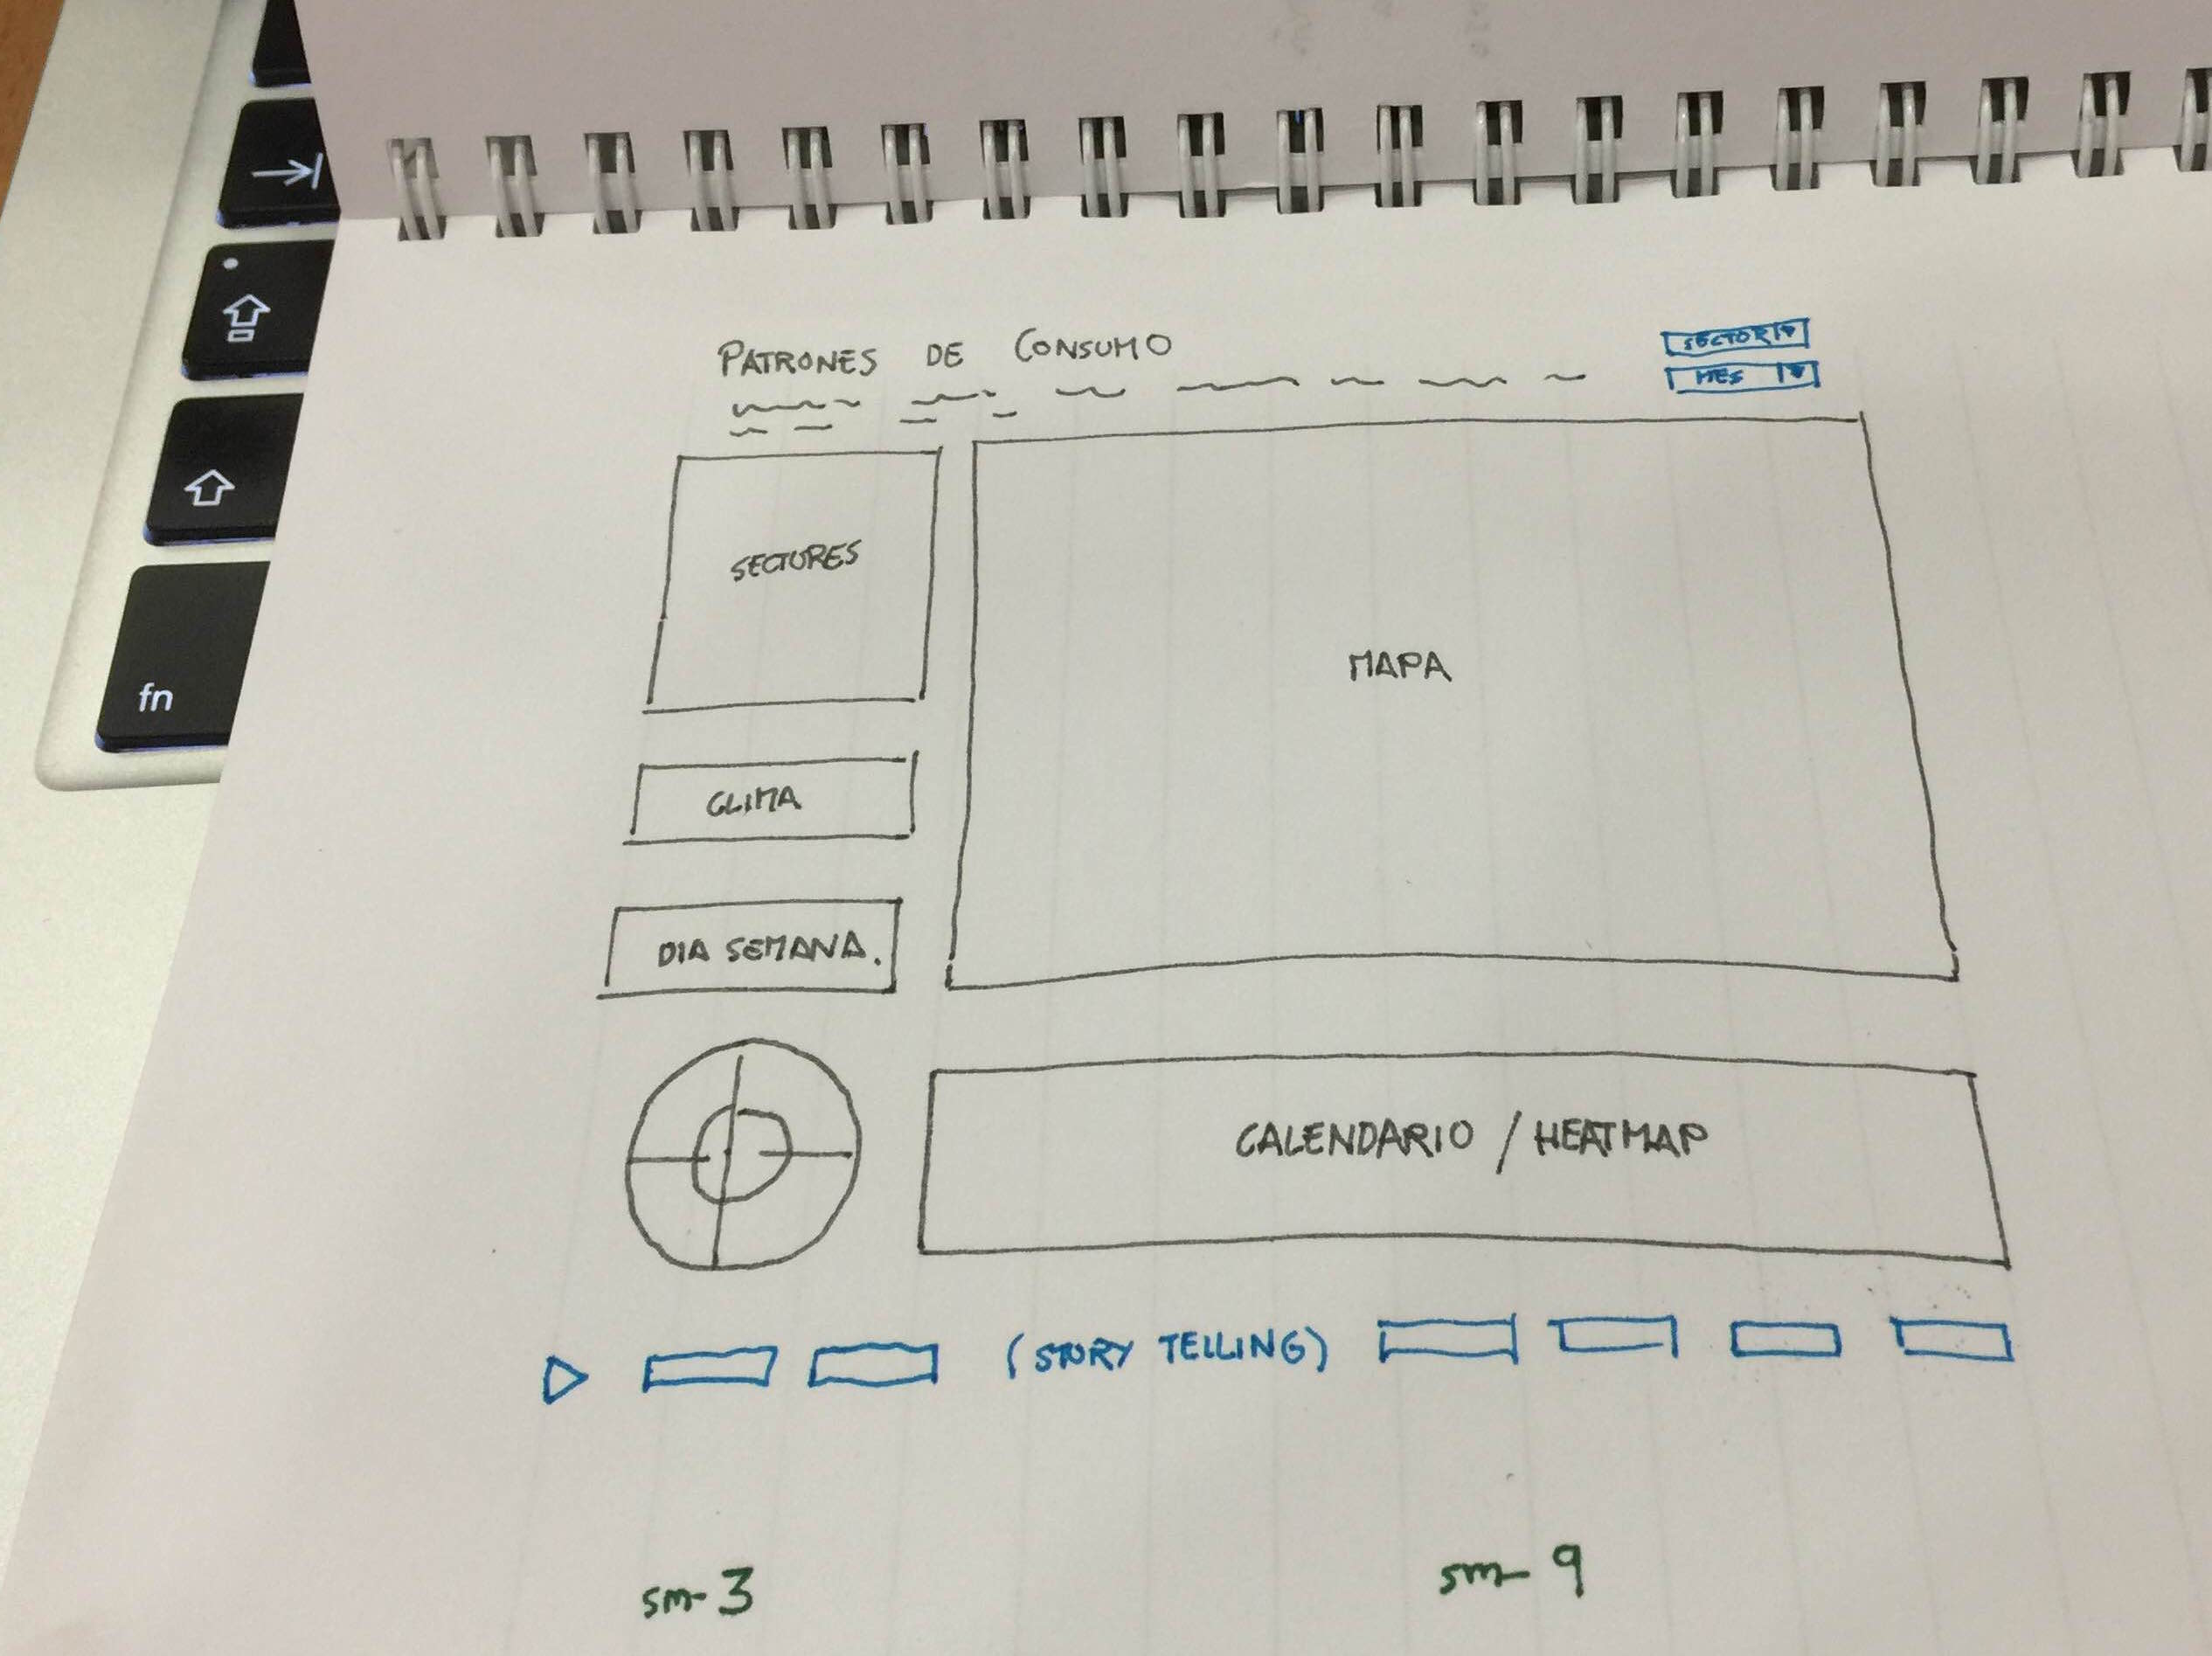 fn
PATRONES DE CONSUMO
SECTOR
MES
SECTORES
MAPA
CLIMA
DIA SEMANA.
CALENDARIO / HEATMAP
(STORY TELLING)
sm-3
sm-9